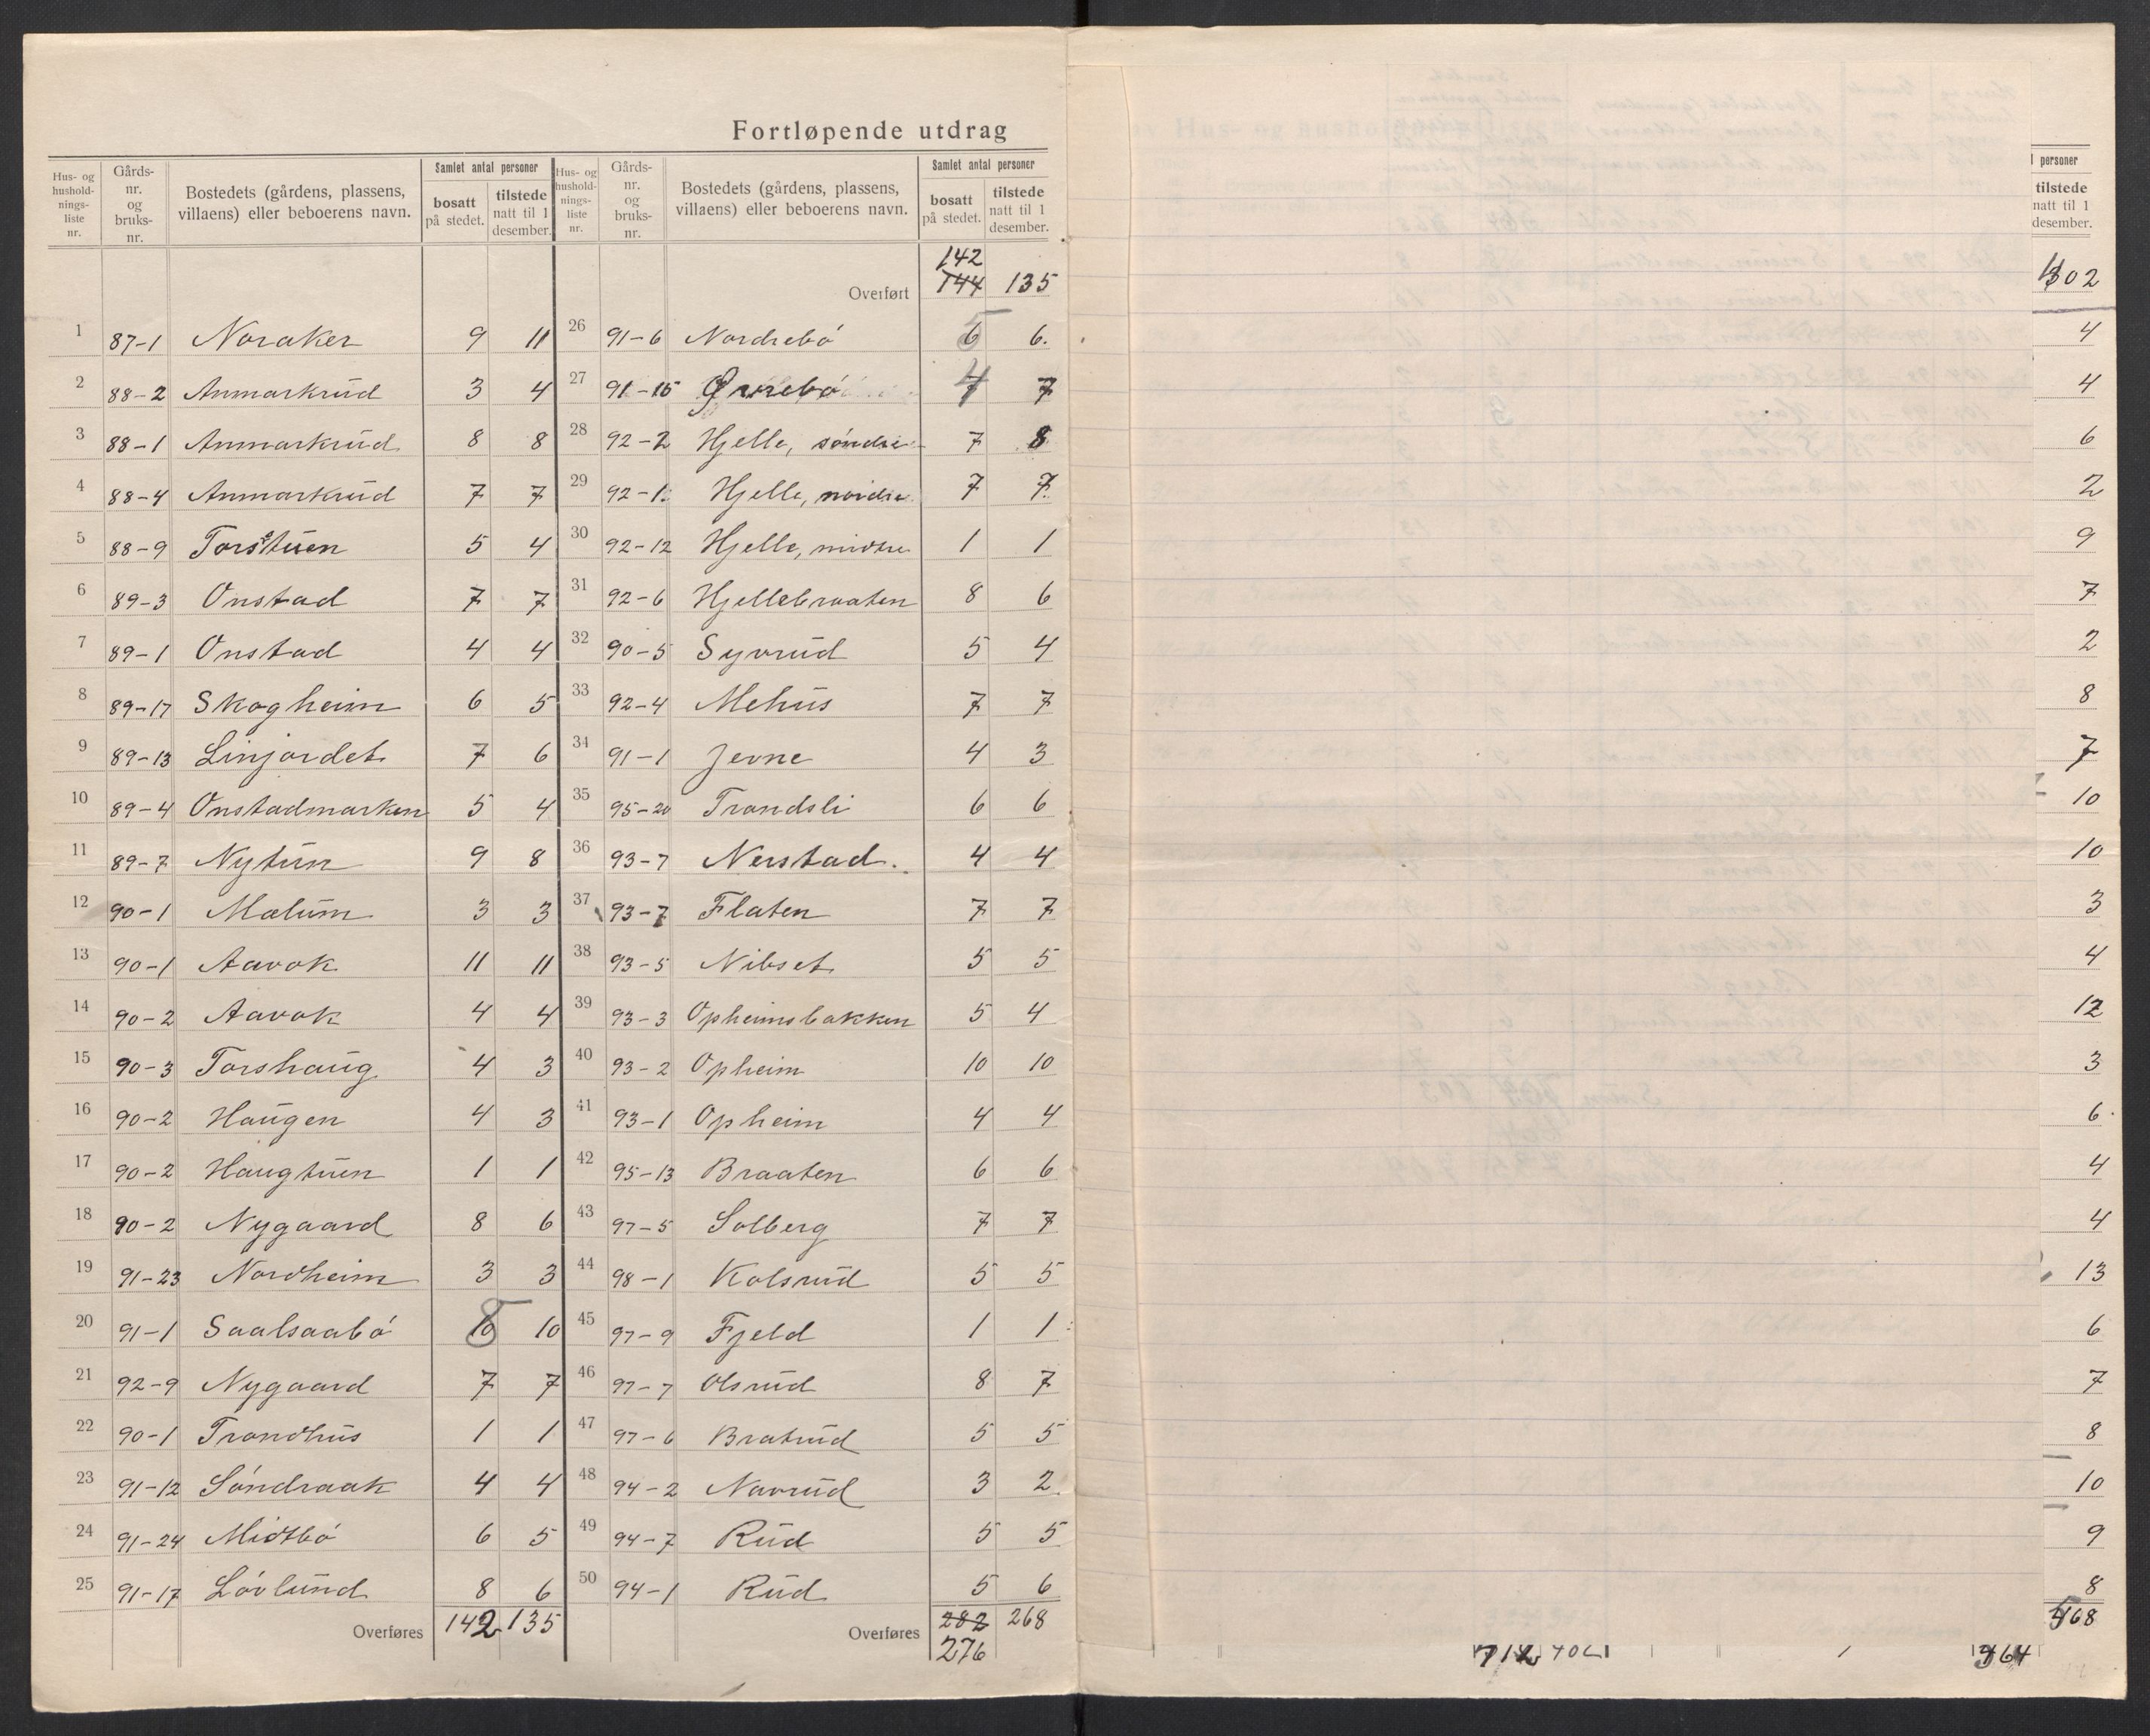 Fortløpende utdrag
Hus- og hushold-nings-liste nr. | Gårds-nr. og bruks-nr. | Bostedets (gårdens, plassens, villaens) eller beboerens navn. | Samlet antal personer | bosatt på stedet. | tilstede natt til 1 desember.
1 87-1 Noraker 9 11
2 88-2 Anmarkrud 3 4
3 88-1 Anmarkrud 8 8
4 88-4 Anmarkrud 7 7
5 88-9 Torstuen 5 4
6 89-3 Onstad 7 7
7 89-1 Onstad 4 4
8 89-17 Skogheim 6 5
9 89-13 Linjordet 7 6
10 89-4 Onstadmarken 5 4
11 89-7 Nytun 9 8
12 90-1 Mælum 3 3
13 90-1 Aavok 11 11
14 90-2 Aavok 4 4
15 90-3 Torshaug 4 3
16 90-2 Haugen 4 3
17 90-2 Haugtuen 1 1
18 90-2 Nygaard 8 6
19 91-23 Nordheim 3 3
20 91-1 Saalsaabø 10 8 10
21 92-9 Nygaard 7 7
22 90-1 Trondhus 1 1
23 91-12 Søndraak 4 4
24 91-24 Midtbø 6 5
25 91-17 Løvlund 8 6
Overføres 142 135
Hus- og hushold-nings-liste nr. | Gårds-nr. og bruks-nr. | Bostedets (gårdens, plassens, villaens) eller beboerens navn. | Samlet antal personer | bosatt på stedet. | tilstede natt til 1 desember.
142
Overført 144 135
26 91-6 Nordrebø 6 5 6.
27 91-15 Øvrebø 7 4 7
28 92-2 Hjelle, søndre 7 8
29 92-1 Hjelle, nordre 7 7
30 92-12 Hjelle, midtre 1 1
31 92-6 Hjellebraaten 8 6
32 90-5 Syvrud 5 4
33 92-4 Mehus 7 7
34 91-1 Jevne 4 3
35 95-20 Trondsli 6 6
36 93-7 Nerstad. 4 4
37 93-7 Flaten 7 7
38 93-5 Nibset 5 5
39 93-3 Opheimsbakken 5 4
40 93-2 Opheim 10 10
41 93-1 Opheim 4 4
42 95-13 Braaten 6 6
43 97-5 Solberg 7 7
44 98-1 Kolsrud 5 5
45 97-9 Fjeld 1 1
46 97-7 Olsrud 8 7
47 97-6 Bratrud 5 5
48 94-2 Navrud 3 2
49 94-7 Rud 5 5
50 94-1 Rud 5 6
Overføres 282 268
276
personer
tilstede natt til 1 desember.
4
4
6
2
9
7
2
8
7
10
10
3
4
12
3
6
4
4
13
6
7
8
10
9
8